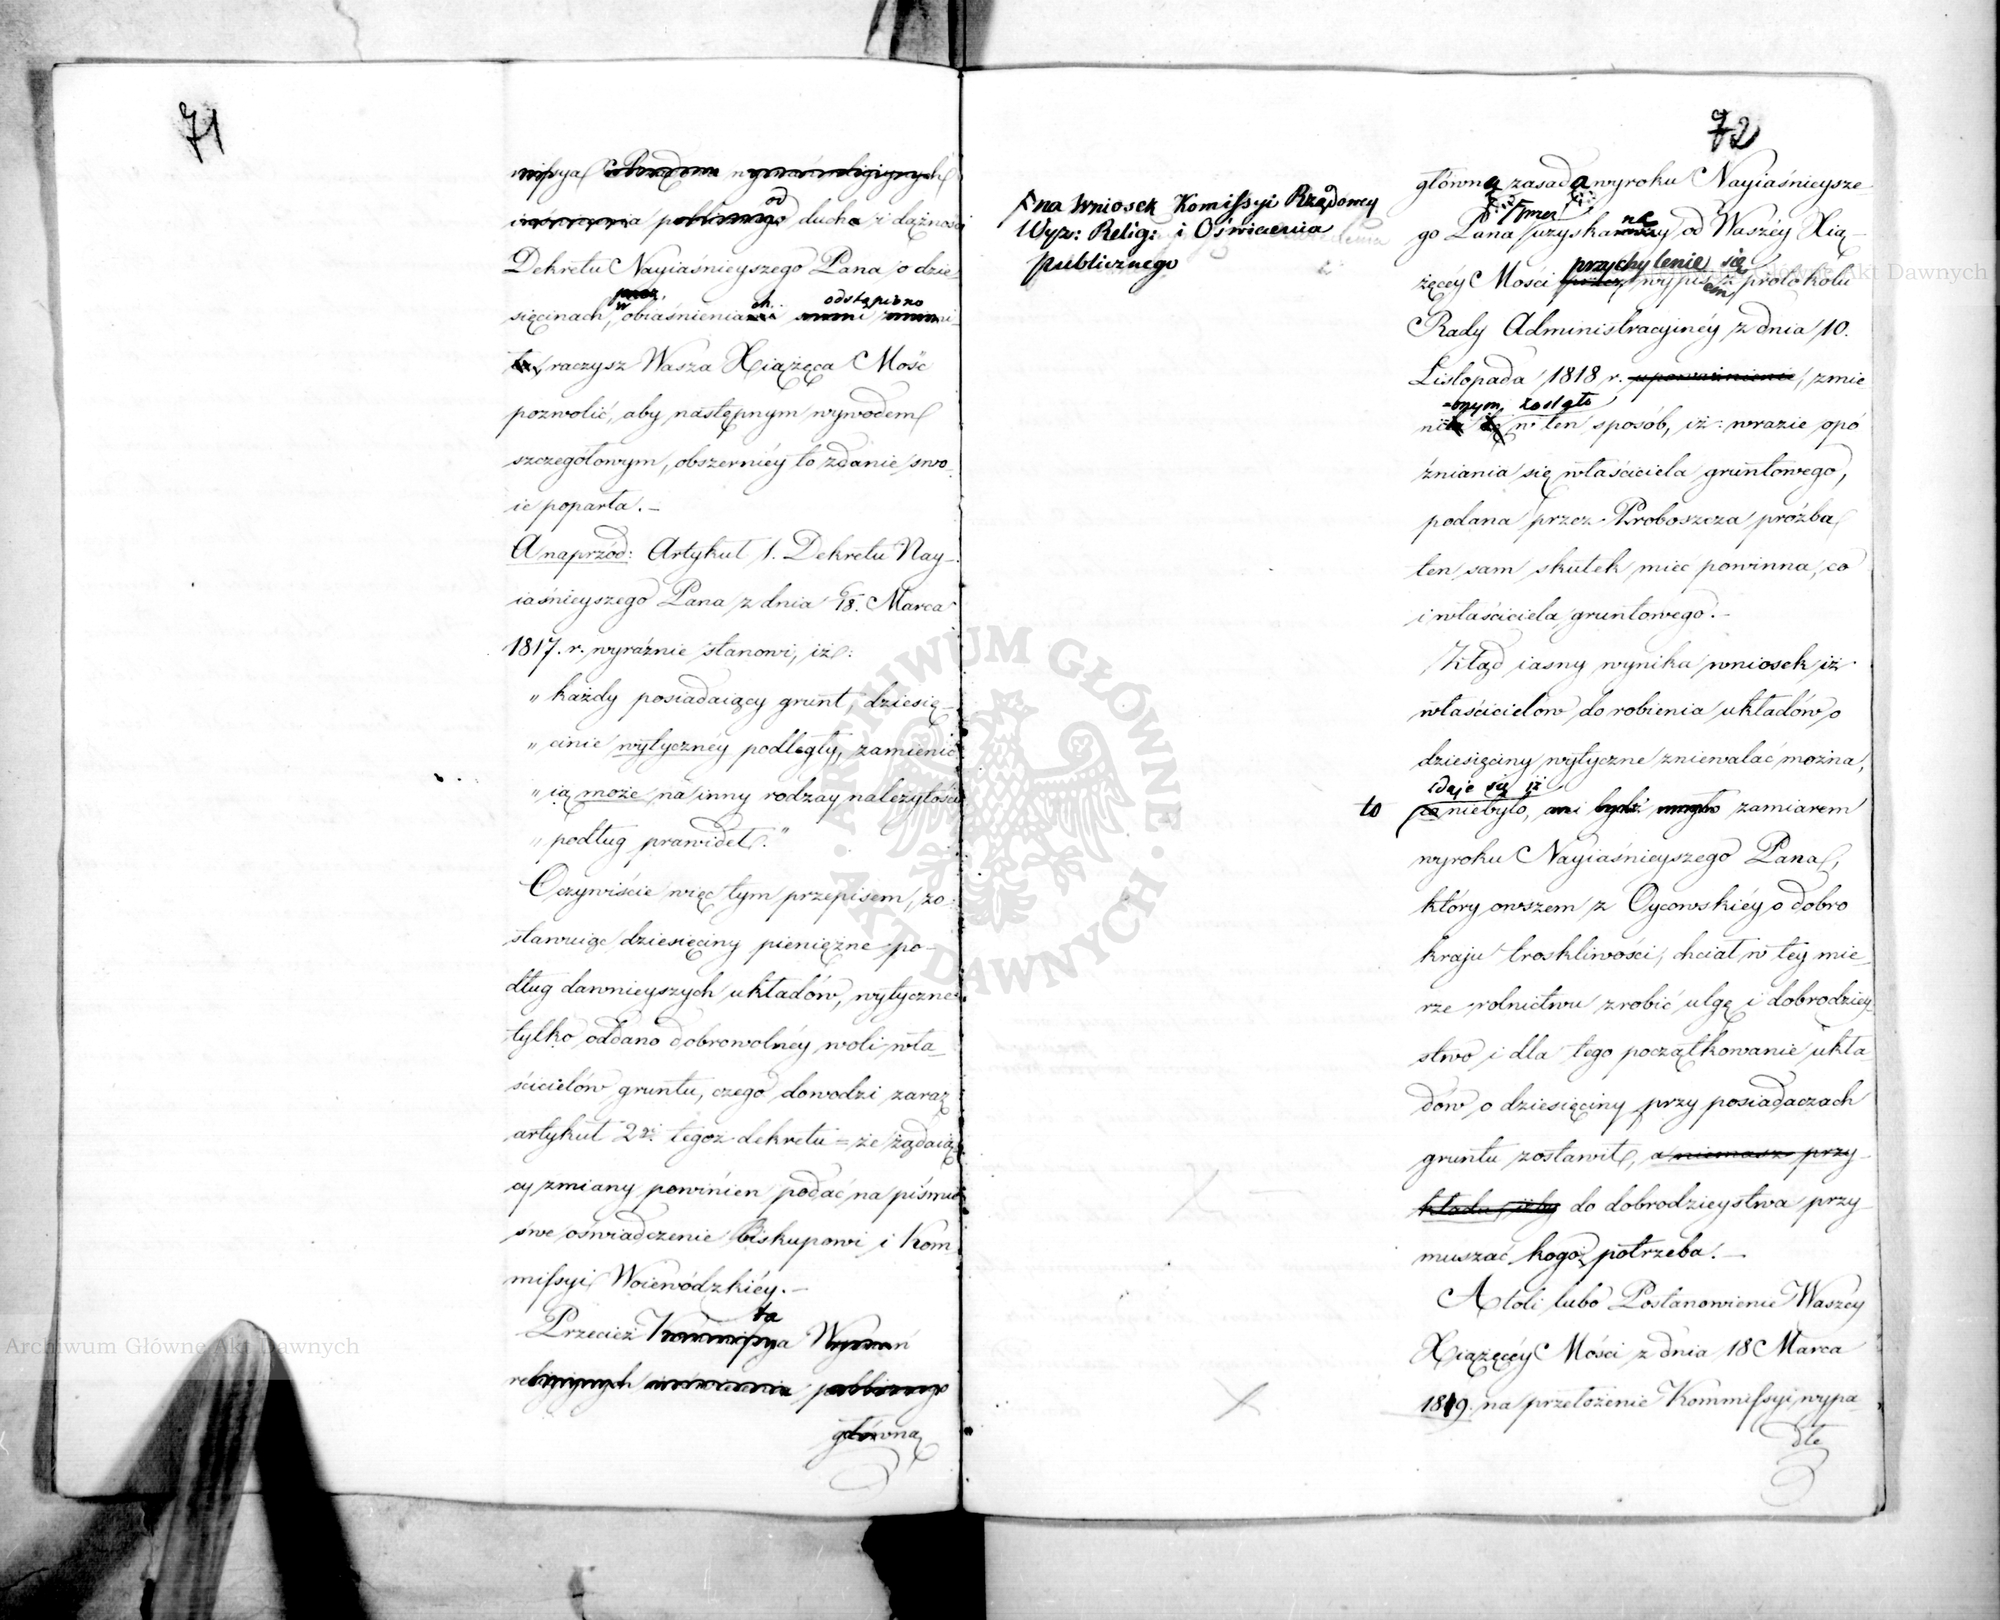 71
missya Obrzędów wyznań religijnych
i oświecenia publicznego od ducha i dążności
Dekretu Nayiaśnieyszego Pana o dzie
sięcinach, w obiaśnieniach odstąpiono
raczysz Wasza Xiążęca Mość
pozwolić, aby następnym wywodem
szczegółowym, obszerniéy to zdanie swo
ie poparła. –
A naprzód: Artykuł 1. Dekretu Nay-
iaśnieyszego Pana z dnia 6/18. Marca
1817. r. wyraźnie stanowi, iż:
„ każdy posiadaiący grunt, dziesię-
„ cinie wytycznéy podległy, zamienić
„ ią może na inny rodzay należytości
„ podług prawideł."
Oczywiście więc tym przepisem, zo-
stawuiąc dziesięciny pieniężne po-
dług dawnieyszych układów, wytyczne
tylko oddano dobrowolnéy woli wła-
ścicielów gruntu, czego dowodzi zaraz
artykuł 2gi tegoż dekretu = że żądaią
cy zmiany powinien podać na piśmie
swe oświadczenie Biskupowi i Kom
missyi Woiewódzkiéy. –
Przecież ta Kommissya Wyznań
religijnych i oświecenia publicznego
główną
72
na Wniosek Komissyi Rządowey
Wyz: Relig: i Oświecenia
publicznego
główną zasadą wyroku Nayiaśnieysze
go Pana uzyskane od Waszéy Xią-
żęcéy Mości przychylenie się wypisem protokołu
Rady Administracyinéy z dnia 10.
Listopada 1818 r. upoważnienie, zmie
-onym, zostało
w ten sposób, iż: w razie opó
źniania się właściciela gruntowego,
podana przez Proboszcza prożba
ten sam skutek mieć powinna, co
i właściciela gruntowego. –
Ztąd iasny wynika wniosek iż
właścicielow do robienia układów o
dziesięciny wytyczne zniewalać można,
zdaje się iż
to co niebyło, ani bydź mogło zamiarem
wyroku Nayiaśnieyszego Pana,
który owszem z Oycowskiéy o dobro
kraju troskliwości, chciał w tey mie-
rze rolnictwu zrobić ulgę i dobrodziey-
stwo i dla tego początkowanie ukła
dów o dziesięciny przy posiadaczach
gruntu zostawił, a niemasz przy-
kładu, żeby do dobrodzieystwa przy-
muszać kogo potrzeba. –
Atoli lubo Postanowienie Waszéy
Xiążęcéy Mości z dnia 18 Marca
1819. na przełożenie Kommissyi wypa-
dłe
ARCHIWUM GŁÓWNE · AKT DAWNYCH ·
Archiwum Główne Akt Dawnych
Archiwum Główne Akt Dawnych